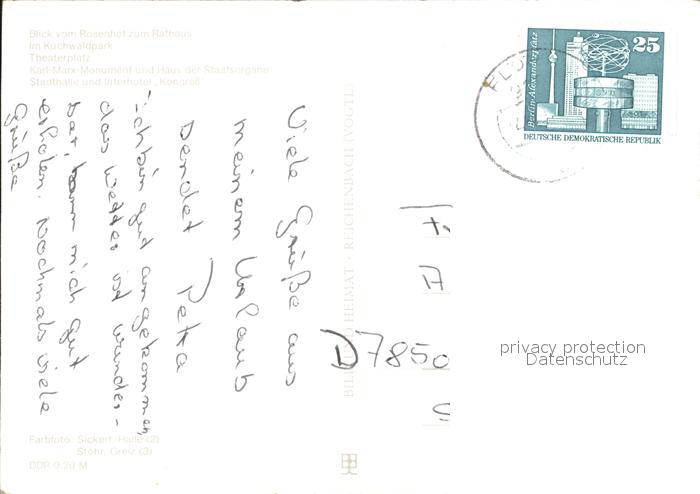 Blick vom Rosenhof zum Rathaus
Im Küchwaldpark
Theaterplatz
Karl-Marx-Monument und Haus der Staatsorgane
Stadthalle und Interhotel „Kongreß"
Viele Grüße aus
meinem Urlaub
sendet Petra
Ich bin gut angekommen,
das Wetter ist wunder-
bar, kann mich gut
erholen. Nochmals viele
Grüße
Farbfoto: Sickert, Halle (2)
Stöhr, Greiz (3)
DDR 0,20 M
BILD UND HEIMAT · REICHENBACH (VOGTL)
Berlin-Alexanderplatz
25
DEUTSCHE DEMOKRATISCHE REPUBLIK
D7850
privacy protection
Datenschutz